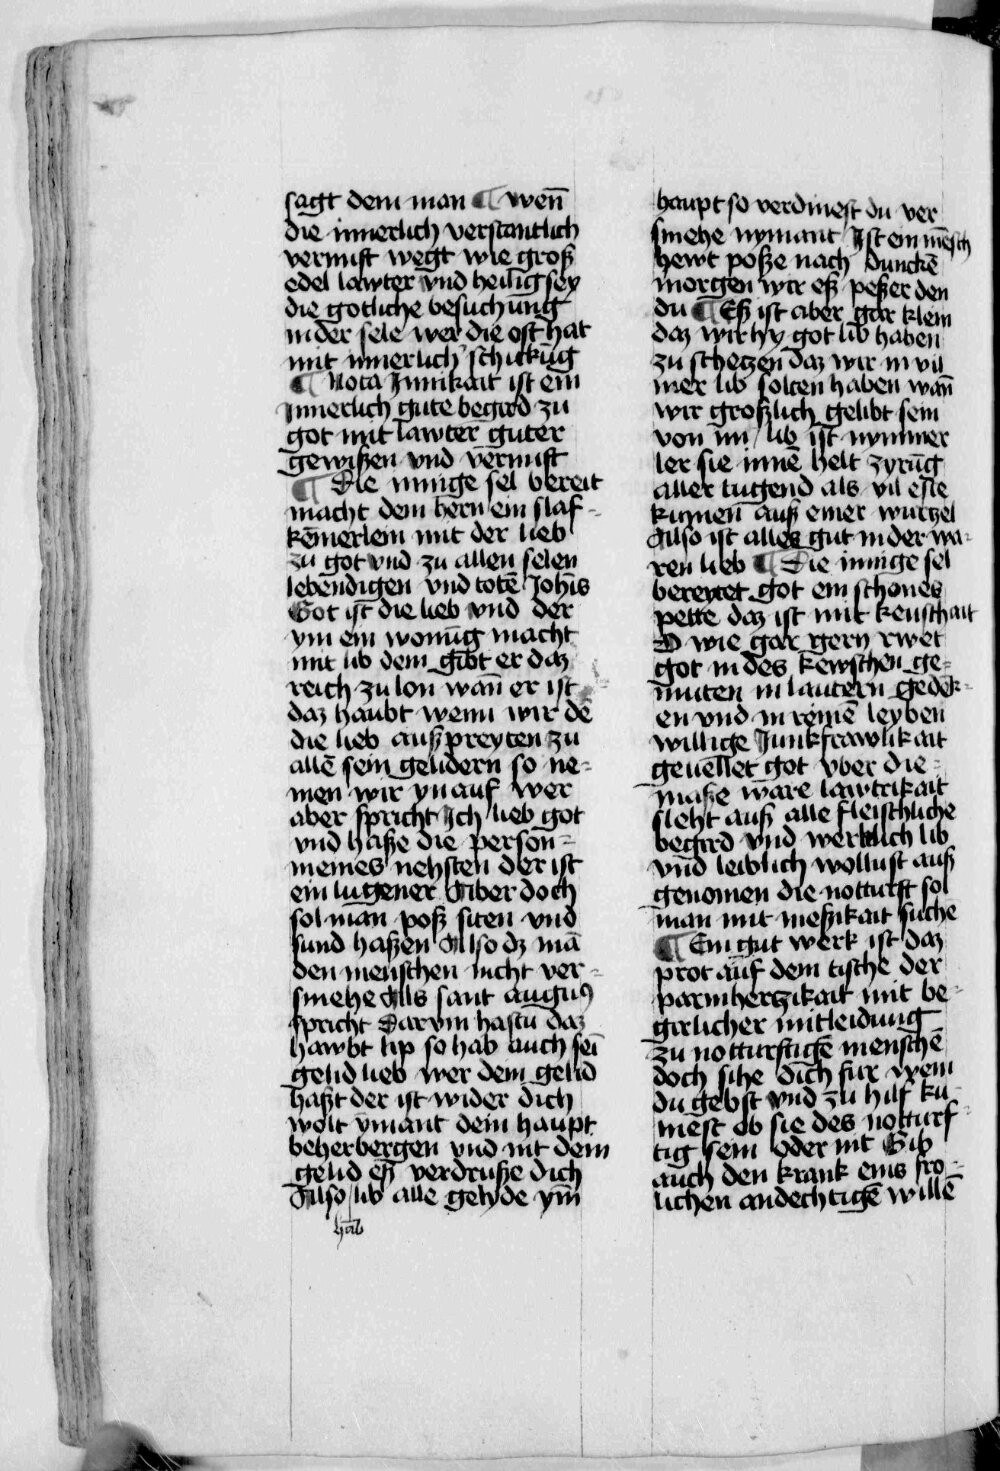 sagt dem man ¶ wen̄
die innerlich verstantlich
vernuft wegt wie groß
edel lawter vnd heilig sey
die gotliche besuchūng
in der sele wer die oft hat
mit innerlich' schickūg
¶ Nota Innikait ist ein
Innerlich gute begird zu
got mit lawter guter
gewißen vnd vernuft
¶ Die innige sel bereit
macht dem hern ein slaf-
kēmerlein mit der lieb
zu got vnd zu allen selen
lebendigen vnd totē Joh̄is
Got ist die lieb vnd der
ym ein wonūg macht
mit lib dem gibt er daz
reich zu lon wan̄ er ist
daz haubt wenn wir dē
die lieb außpreyten zu
allē sein gelidern so ne-
men wir yn auf wer
aber spricht Ich lieb got
vnd haße die person-
meines nehsten der ist
ein lugener Aber doch
sol man poß siten vnd
sund haßen Also dz mā
den menschen nicht ver-
smehe Als sant augus
spricht Darvm hastu daz
hawbt lip so hab auch sei
gelid lieb wer dem gelid
haßt der ist wider dich
wolt ymant dem haupt
beherbergen vnd nit dem
gelid eß verdruße dich
Also lib alle gelyde ym̄
hab
haupt so verdinest du ver
smehe nymant Ist ein mēsch
hewt poße nach dunckē
morgen wir eß peßer den
du ¶ Eß ist aber gar klein
daz wir hy got lib haben
zu schetzen daz wir in vil
mer lib solten haben wan̄
wir großlich gelibt sein
von im lib ist nymmer
ler sie innē helt zyrūg
aller tugend als vil este
kumen auß einer wurtzel
Also ist alles gut in der wa-
ren lieb ¶ Die innige sel
bereytet got ein schones
pette daz ist mit keuschait
O wie gar gern rwet
got in des kewschen ge-
muten in lautern gedēk-
en vnd in reinē leyben
willige Junkfrawlikait
geuellet got vber die-
maße ware lawtrikait
sleht auß alle fleischliche
begird vnd werltlich lib
vnd leiblich wollust auß
genomen die notturft sol
man mit meßikait suchē
¶ Ein gut werk ist daz
prot auf dem tische der
parmhertzikait mit be-
girlicher mitleidung
zu notturftigē menschē
doch sihe dich fur wem
du gebst vnd zu hilf ku-
mest ob sie des notturf-
tig sein oder nit Gib
auch den krank eins fro-
lichen andechtigē willē